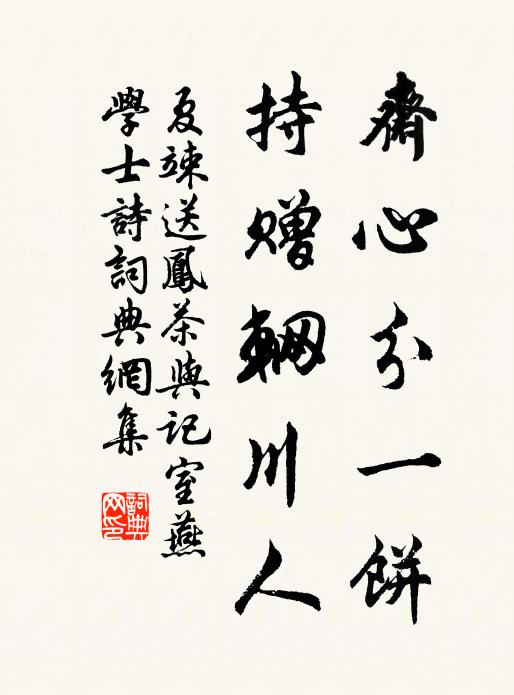 齋心分一餅
持贈輞川人
夏竦送鳳茶與記室燕
學士詩詞典網集
詞典網印